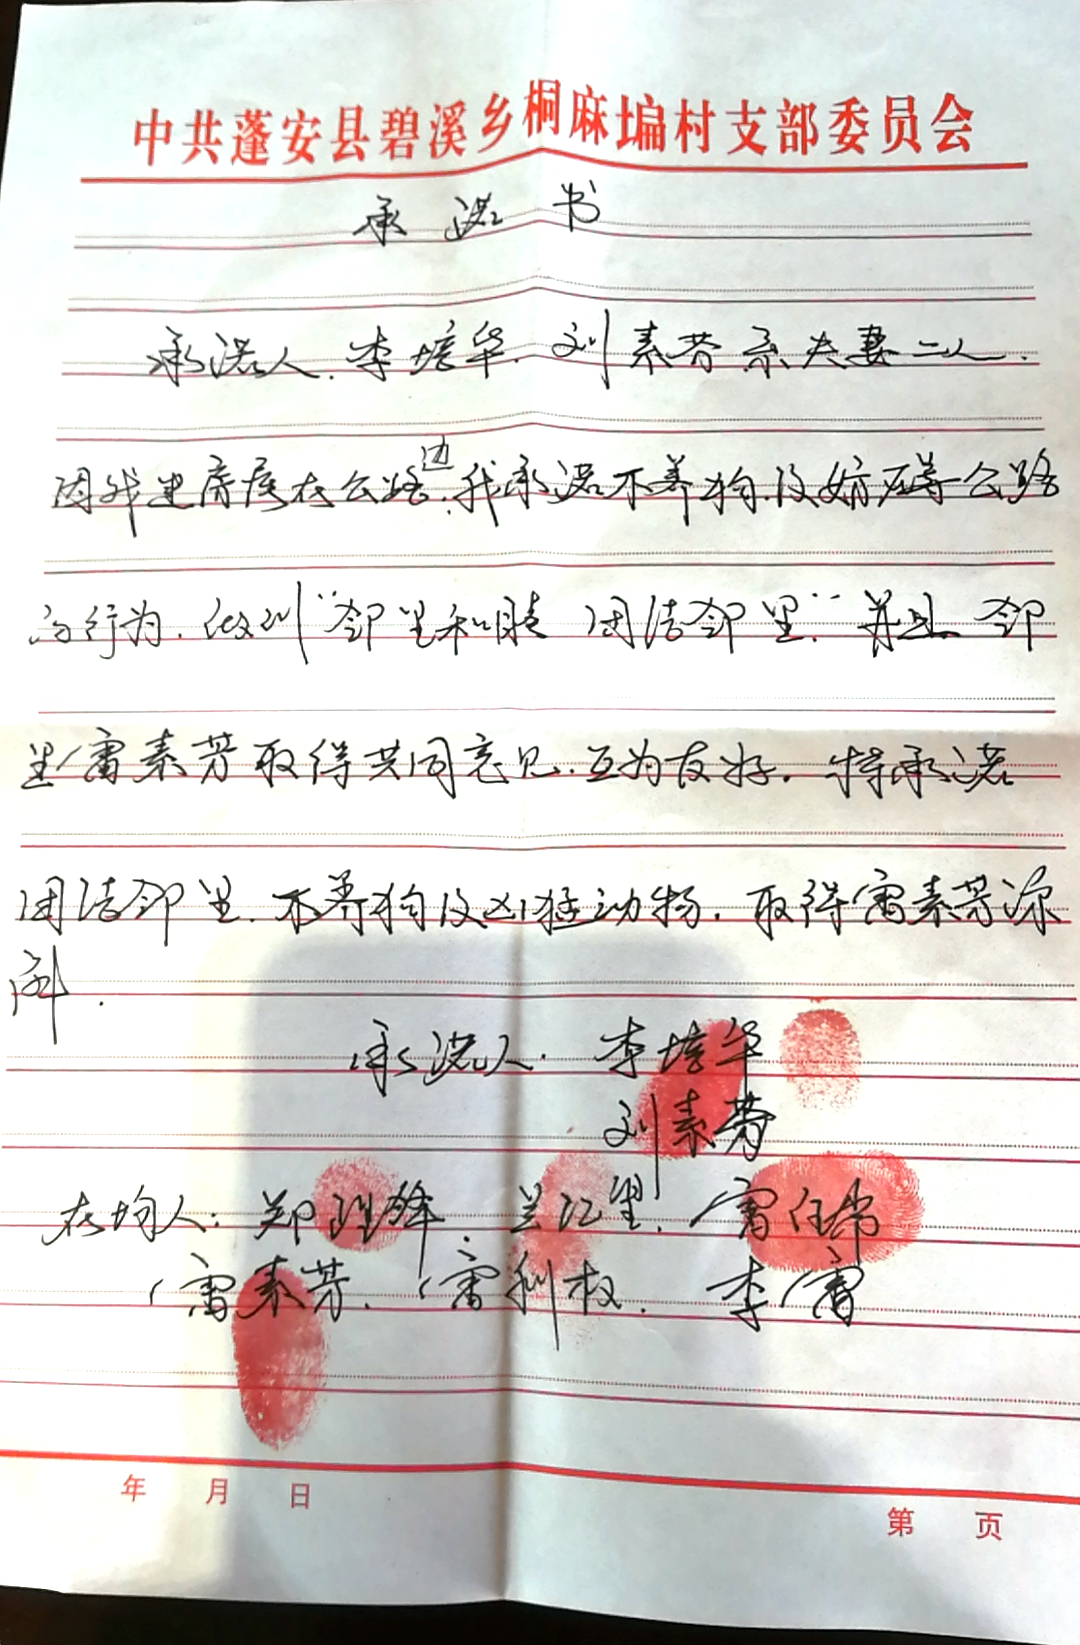 中共蓬安县碧溪乡桐麻塥村支部委员会
承诺书
承诺人.李培华.刘素芳系夫妻二人.
因我建房屋在公路边.我承诺不养狗.及妨碍公路
的行为.做到“邻里和睦 团结邻里.”并且 邻
里雷素芳取得共同意见.互为友好.特承诺
团结邻里.不养狗及凶猛动物.取得雷素芳谅
解.
承诺人. 李培华
刘素芳
在均人:郑 . 兰 . 雷
雷素芳.雷利权. 李雷
年 月 日
第 页